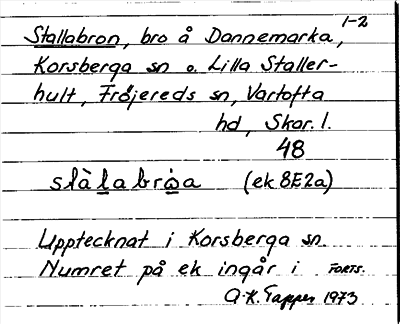 1-2
Stallabron, bro å Dannemarka,
Korsberga sn o. Lilla Staller-
hult, Fröjereds sn, Vartofta
hd, Skar. l.
48
slàlabrȧ̀a (ek 8E2a)
Upptecknat i Korsberga sn.
Numret på ek ingår i FORTS.
A-K. Tapper 1973